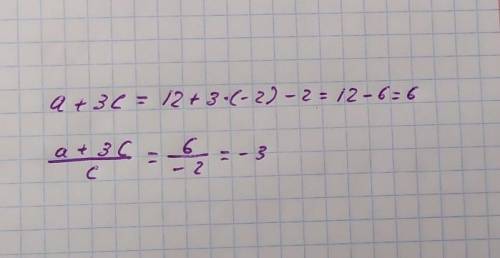 a + 3c = 12 + 3·(-2) - 2 = 12 - 6 = 6
(a + 3c)/c = 6/-2 = -3